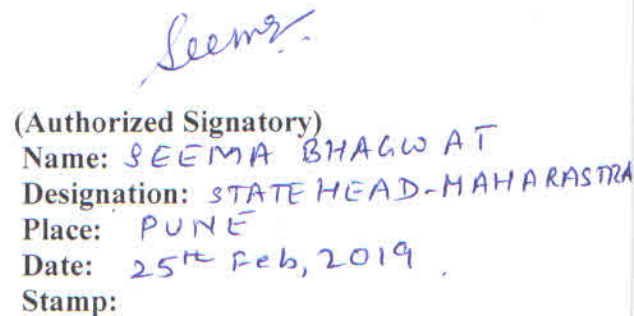 Seema
(Authorized Signatory)
Name: SEEMA BHAGWAT
Designation: STATE HEAD-MAHARASTRA
Place: PUNE
Date: 25th Feb, 2019.
Stamp: